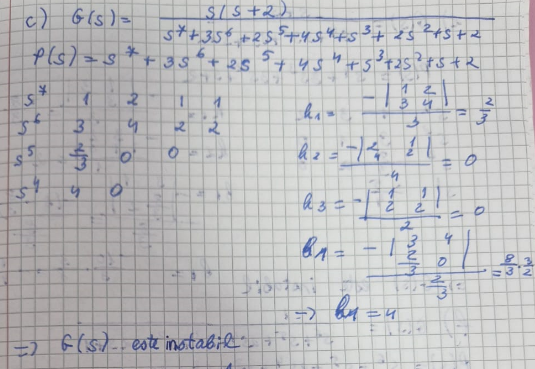 c) G(s) = s(s+2) / s⁷+3s⁶+2s⁵+4s⁴+s³+2s²+s+2
P(s) = s⁷ + 3s⁶ + 2s⁵ + 4s⁴ + s³+2s²+s+2
s⁷ 1 2 1 1
s⁶ 3 4 2 2
s⁵ 2/3 0 0
s⁴ 4 0
h₁ = -|1 2; 3 4| / 3 = 2/3
h₂ = -|2 1; 4 2| / 4 = 0
h₃ = -|1 1; 2 2| / 2 = 0
h₁ = -|3 4; 2/3 0| / 2/3 = 8/3 · 3/2
=> h₁ = 4
=> G(s) este instabil.